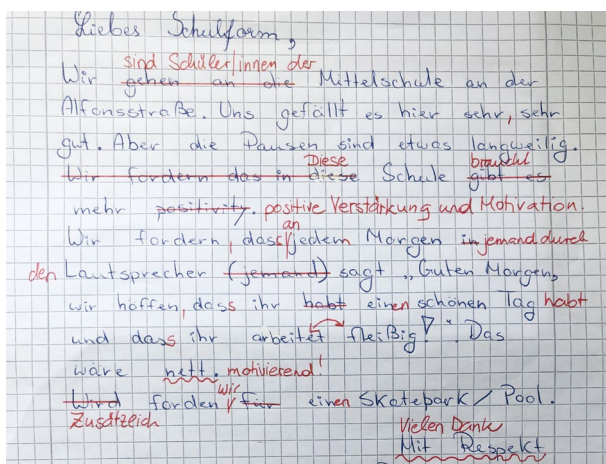 Liebes Schulform,
sind Schüler/innen der
Wir gehen an die Mittelschule an der
Alfonsstraße. Uns gefällt es hier sehr, sehr
gut. Aber die Pausen sind etwas langweilig.
Diese braucht
Wir fordern das in diese Schule gibt es
mehr positivity. positive Verstärkung und Motivation.
an
Wir fordern, dass jedem Morgen in jemand durch
den Lautsprecher (jemand) sagt „Guten Morgen,
wir hoffen, dass ihr habt einen schönen Tag habt
und dass ihr arbeitet fleißig!". Das
wäre nett. motivierend!
wir
Wird forden für einen Skatepark / Pool.
Zusätzeich
Vielen Dank
Mit Respekt